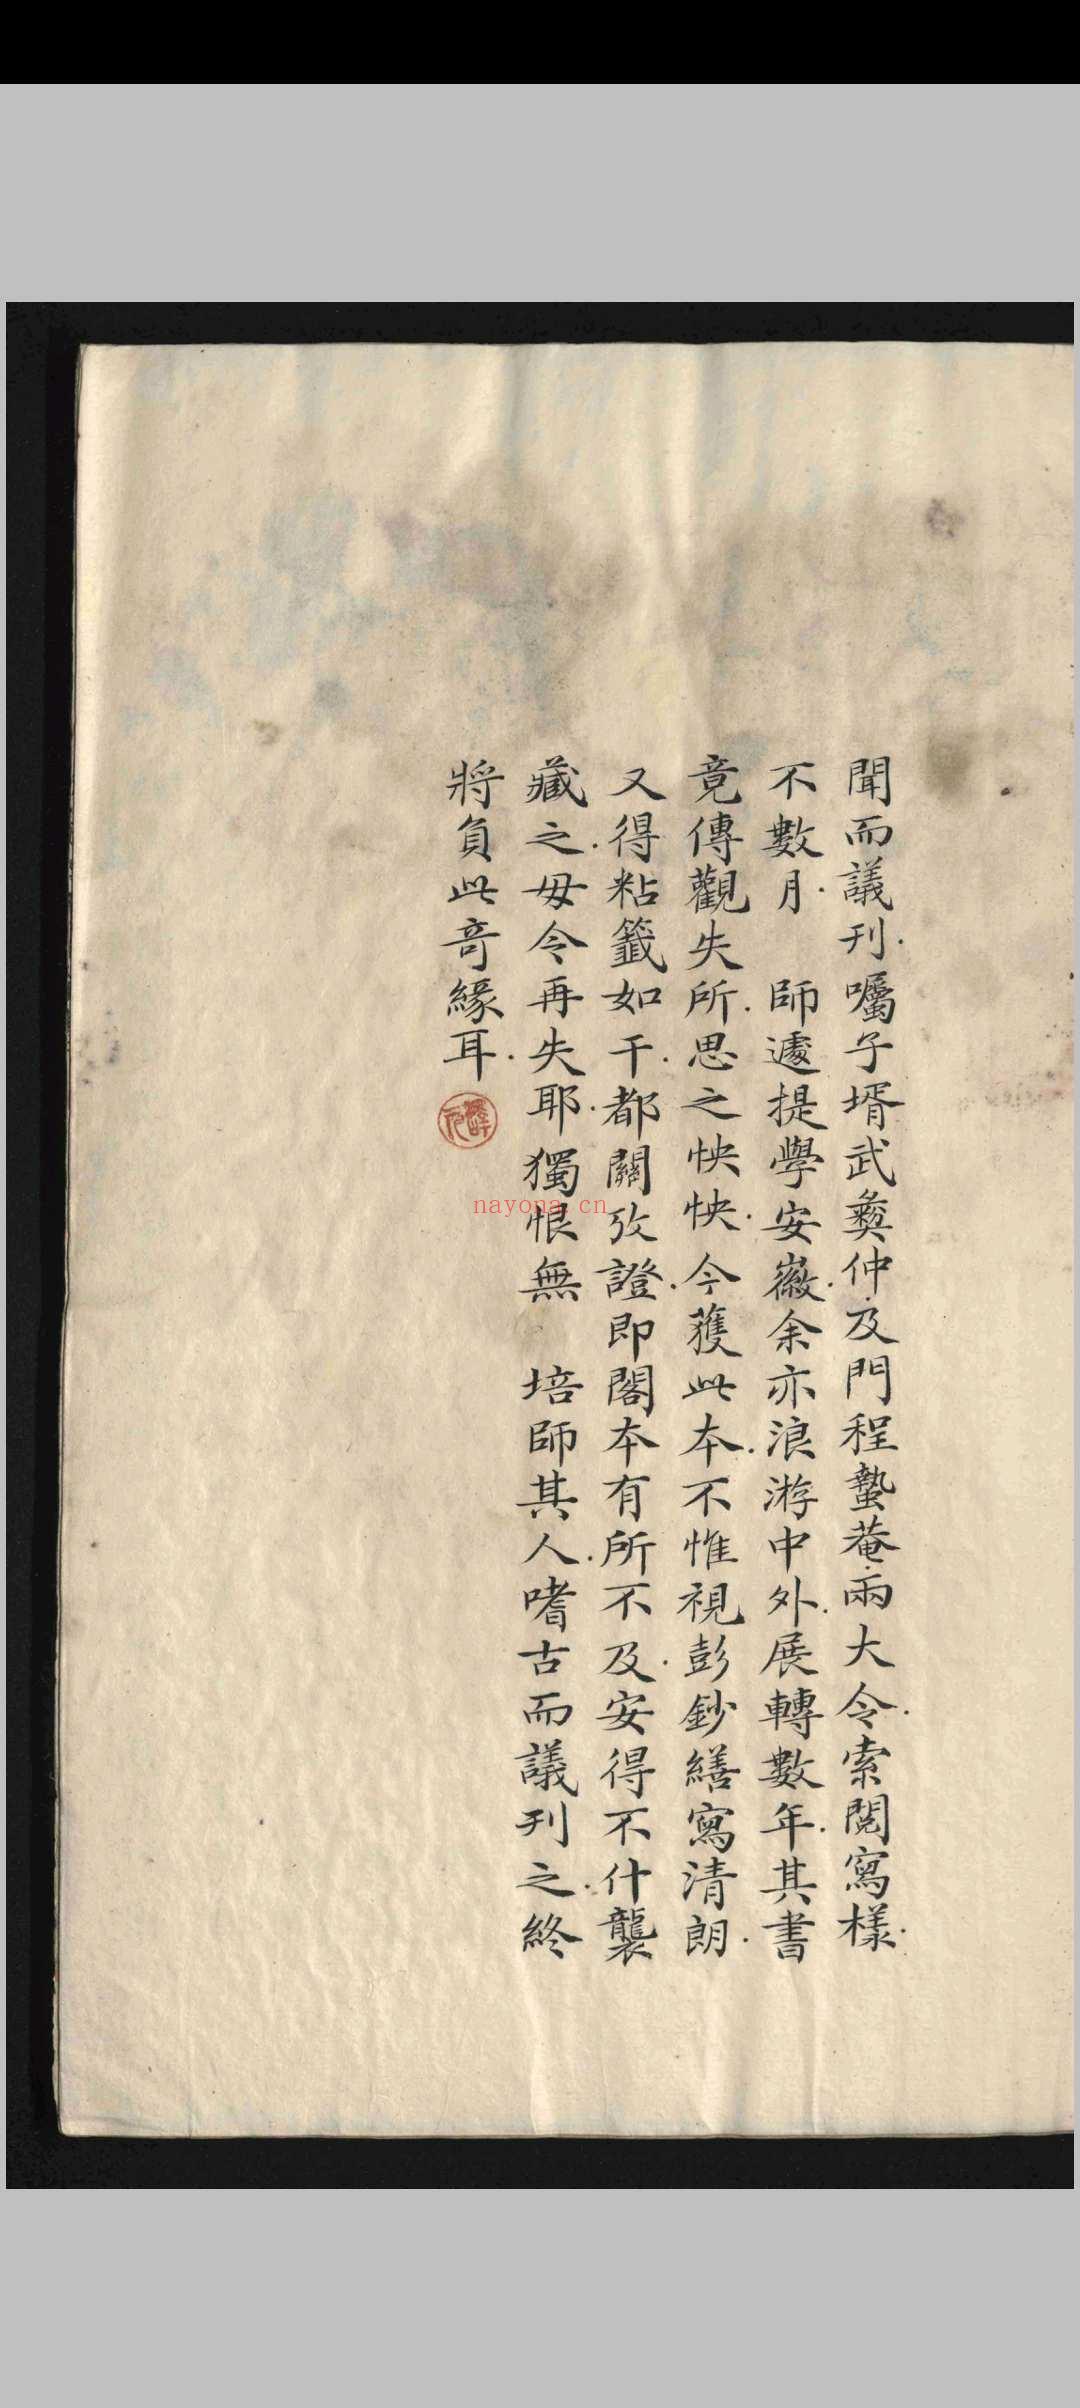 聞而議刊囑子壻武彝仲及門程蟄菴兩大令索閱寫樣
不數月 師遽提學安徽余亦浪游中外展轉數年其書
竟傳觀失所思之怏怏今獲此本不惟視彭鈔繕寫清朗
又得粘籤如干都關攷證即閣本有所不及安得不什襲
藏之毋令再失耶獨恨無 培師其人嗜古而議刊之終
將負此奇緣耳
nayona.cn